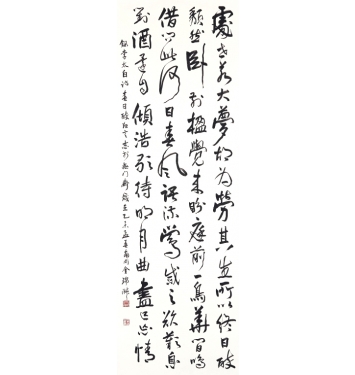 處世若大夢胡為勞其生所以終日醉
頹然臥前楹覺來盼庭前一鳥華間鳴
借問此何日春風語流鶯感之欲歎息
對酒還自傾浩歌待明月曲盡已忘情
錄李太白詩春日醉起言志